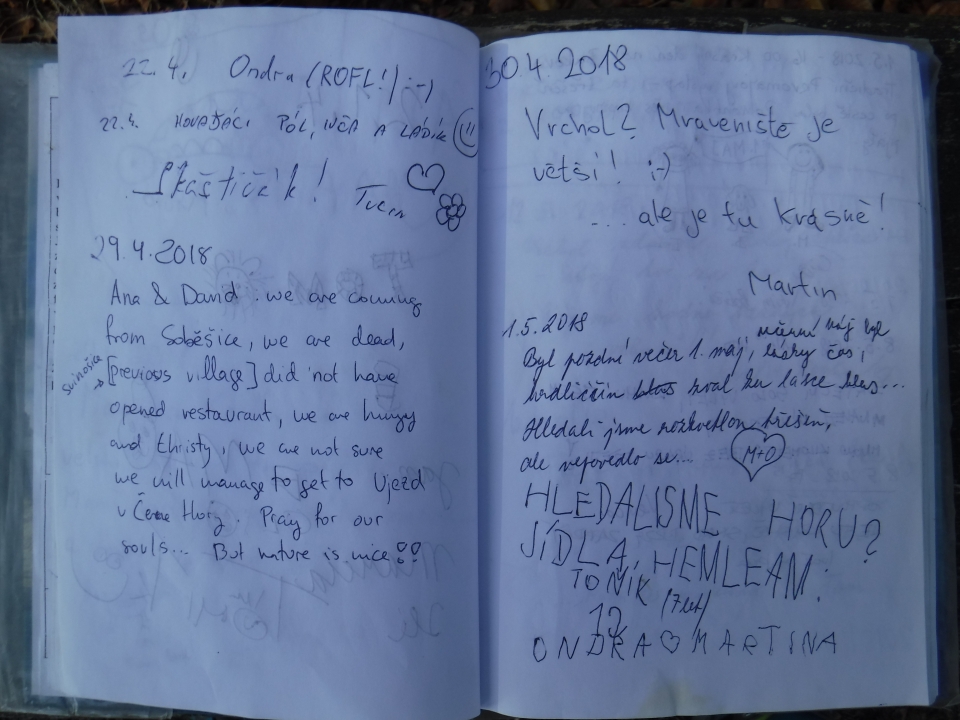 22.4. Ondra (ROFL!) :-)
22.4. PÓL, A LÁDÍK
Škaštičák!
29.4.2018
Ana & David. we are couming
from Soběšice, we are dead,
svinošice
[previous village] did not have
opened restaurant, we are hungy
and thirsty, we are not sure
we will manage to get to Ujezd
u Černe Hory. Pray for our
souls... But nature is nice!!
30.4.2018
Vrchol? Mraveniště je
větší! ;-)
...ale je tu krásně!
Martin
1.5.2018
Byl pozdní večer 1. máj, večerní máj byl lásky čas,
hrdliččin zval ku lásce hlas...
Hledali jsme rozkvetlou třešeň,
ale nepovedlo se... M+O
HLEDALISME HORU?
JÍDLA, HEMLEAM.
TONÍK (7 let)
12
ONDRA ♡ MARTINA